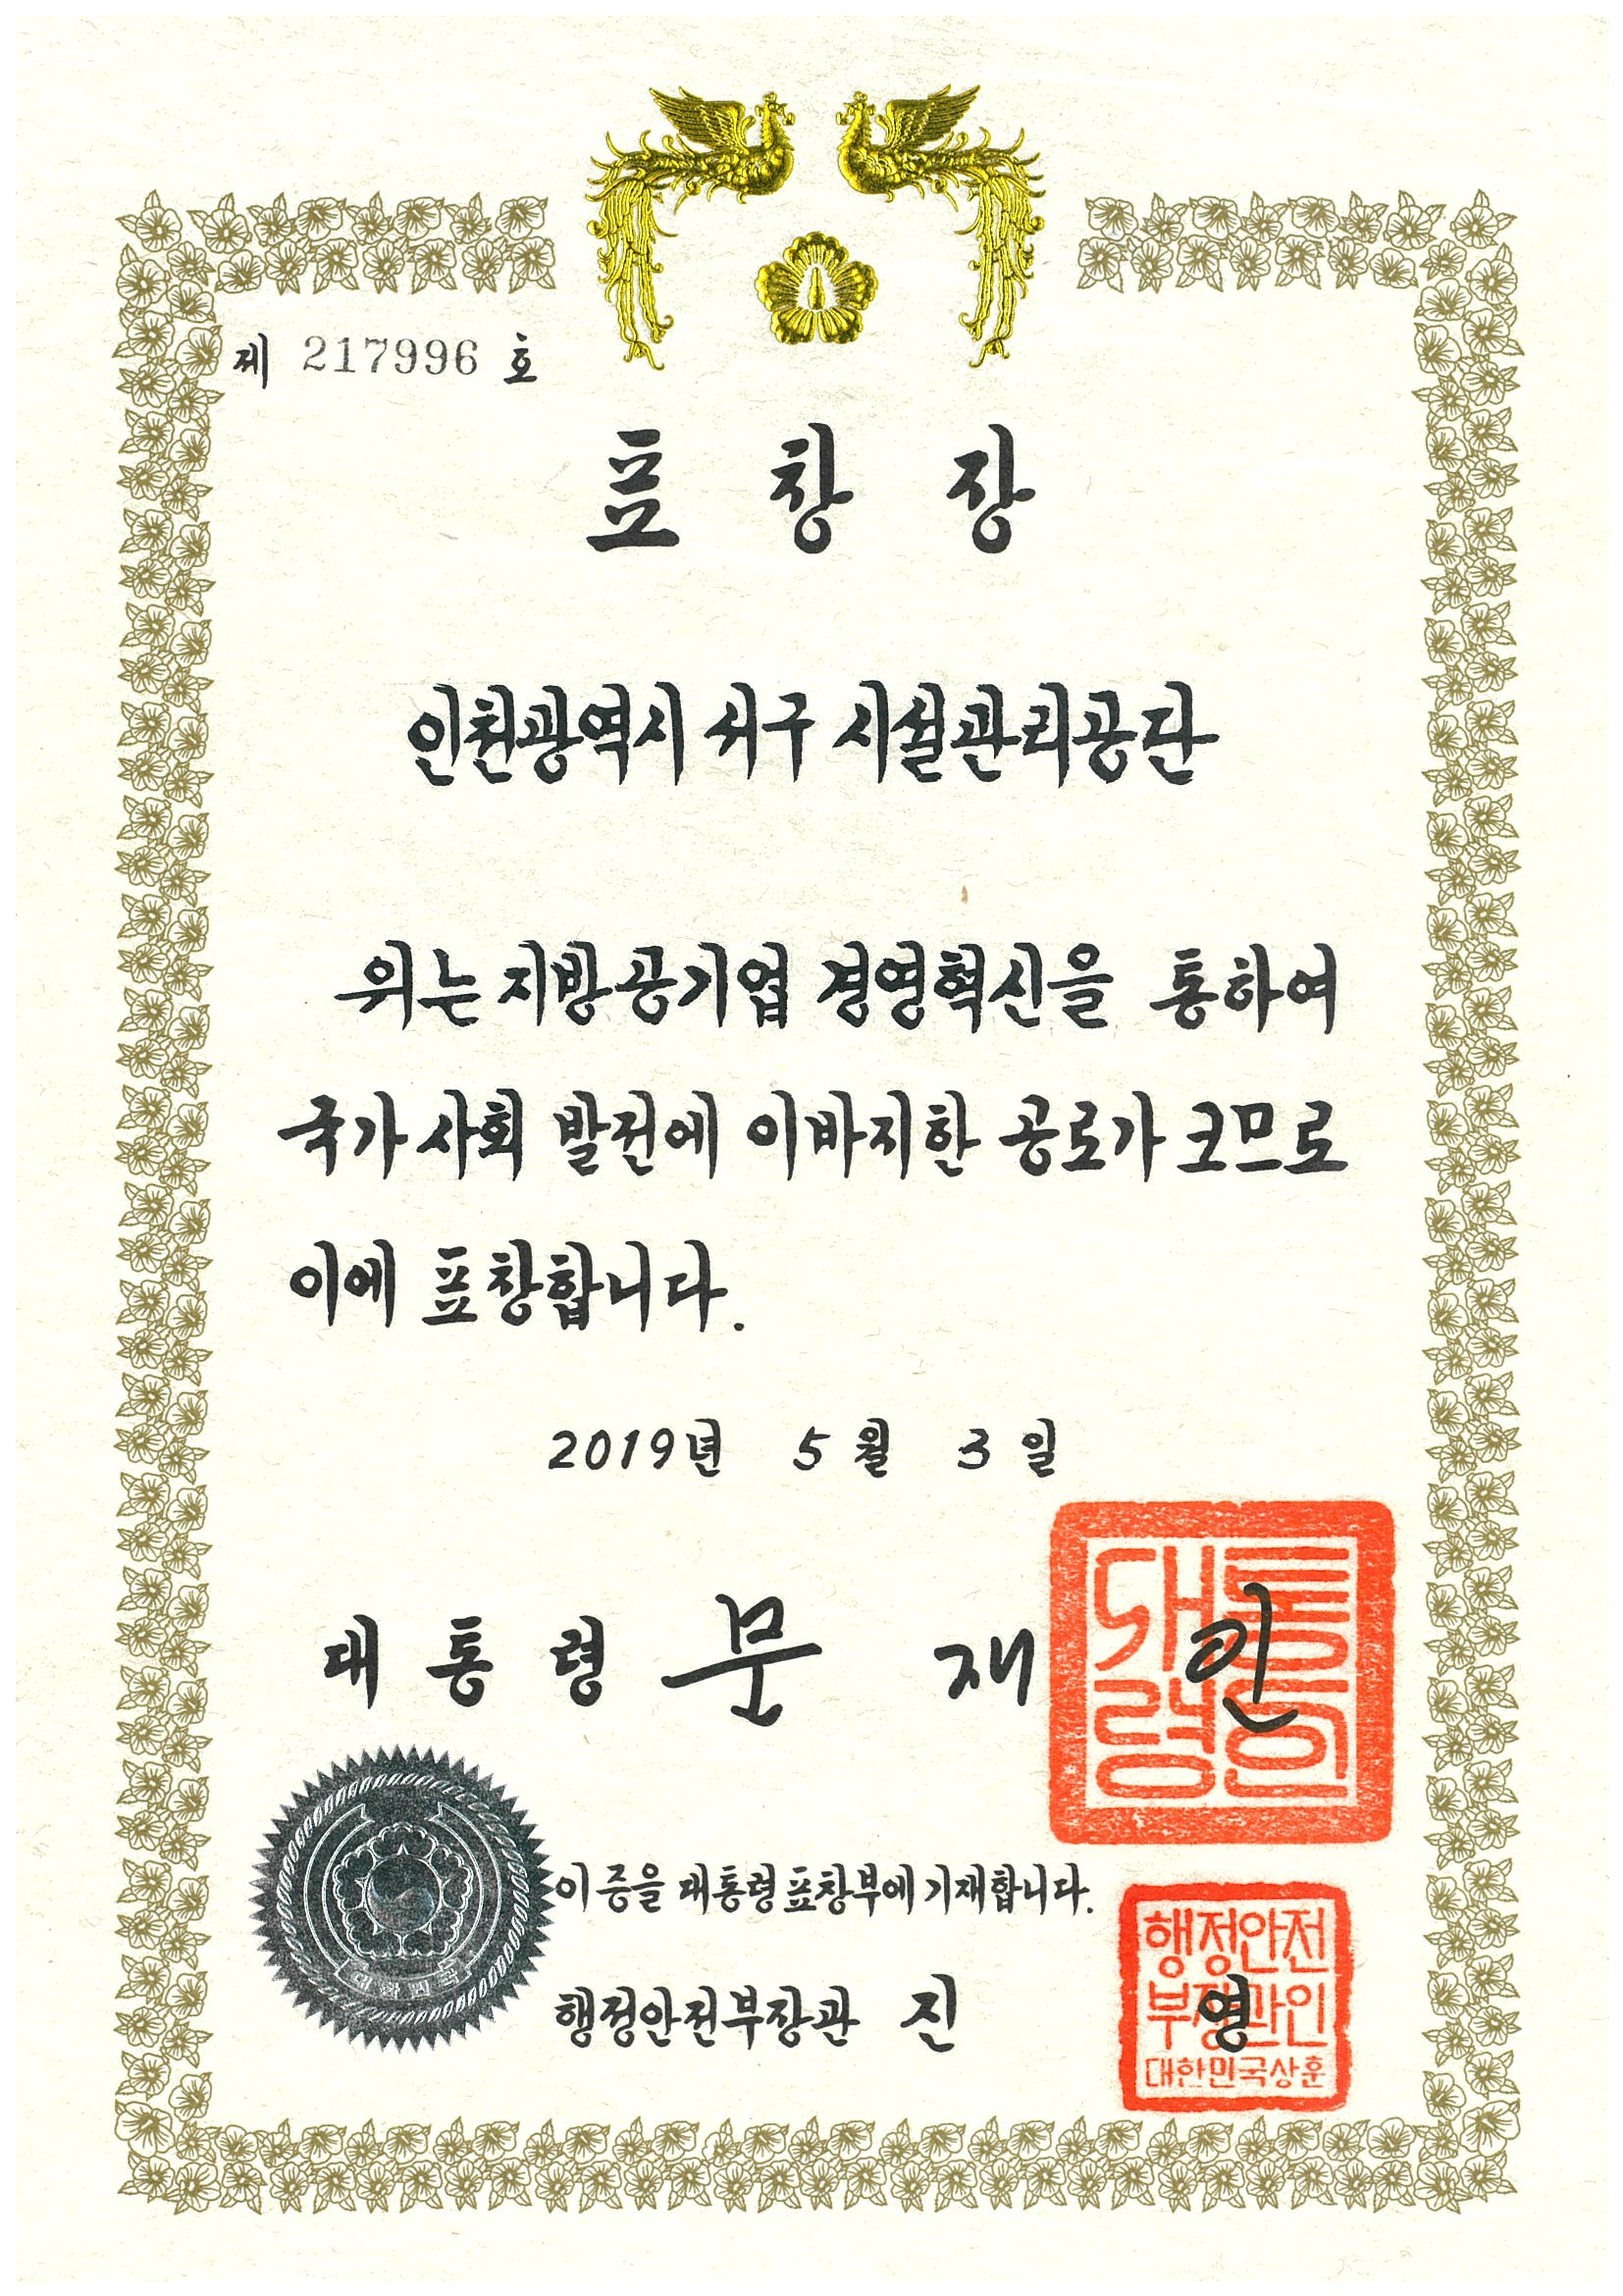 제 217996 호
표 창 장
인천광역시 서구 시설관리공단
위는 지방공기업 경영혁신을 통하여
국가 사회 발전에 이바지한 공로가 크므로
이에 표창합니다.
2019년 5월 3일
대통령 문 재 인
대통령의인
이 증을 대통령표창부에 기재합니다.
행정안전부장관 진 영
행정안전
부장관인
대한민국상훈
대한민국